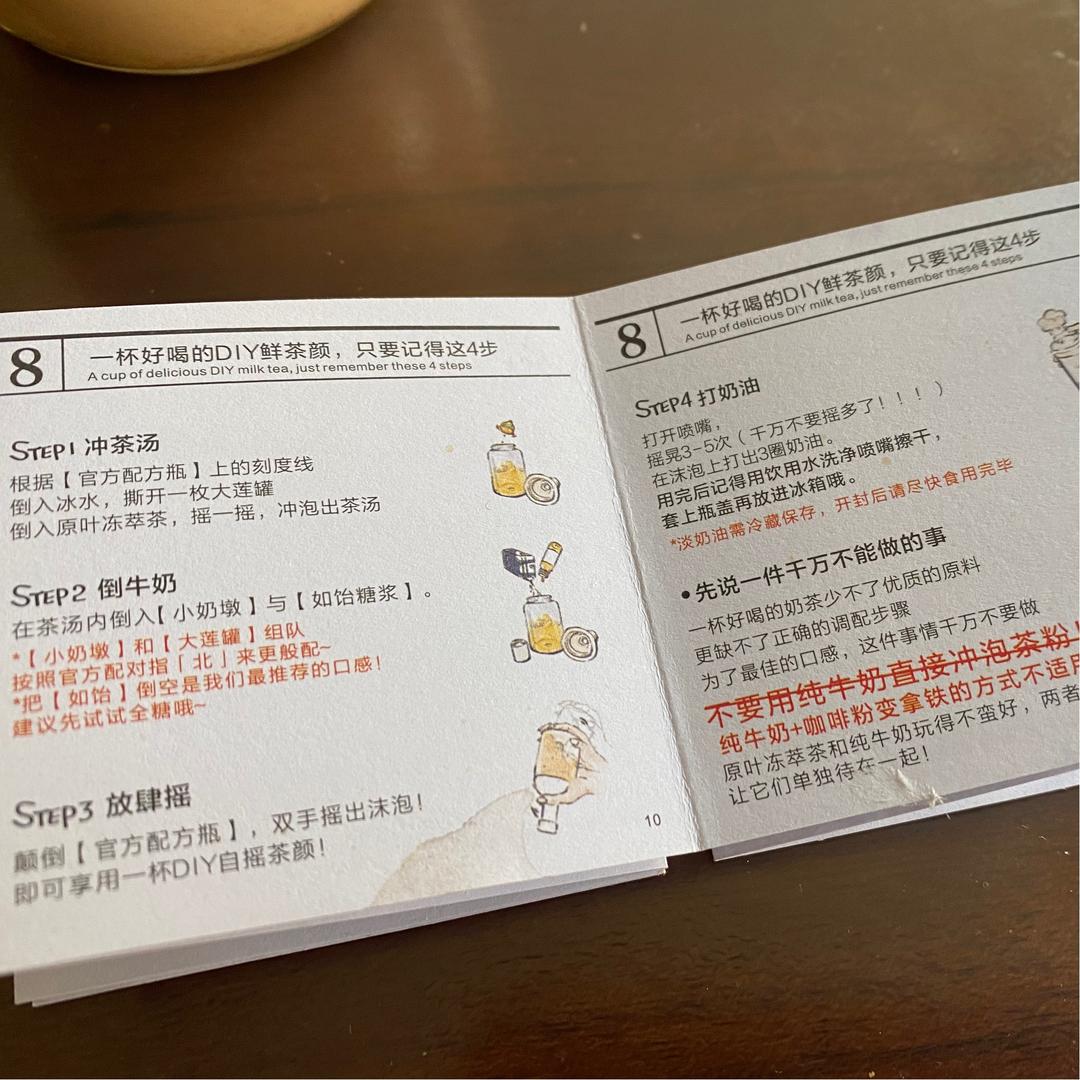 8
一杯好喝的DIY鲜茶颜，只要记得这4步
A cup of delicious DIY milk tea, just remember these 4 steps
STEP1 冲茶汤
根据【官方配方瓶】上的刻度线
倒入冰水，撕开一枚大莲罐
倒入原叶冻萃茶，摇一摇，冲泡出茶汤
STEP2 倒牛奶
在茶汤内倒入【小奶墩】与【如饴糖浆】。
*【小奶墩】和【大莲罐】组队
按照官方配对指「北」来更般配~
*把【如饴】倒空是我们最推荐的口感！
建议先试试全糖哦~
STEP3 放肆摇
颠倒【官方配方瓶】，双手摇出沫泡！
即可享用一杯DIY自摇茶颜！
10
8
一杯好喝的DIY鲜茶颜，只要记得这4步
A cup of delicious DIY milk tea, just remember these 4 steps
STEP4 打奶油
打开喷嘴，
摇晃3-5次（千万不要摇多了！！！）
在沫泡上打出3圈奶油。
用完后记得用饮用水洗净喷嘴擦干，
套上瓶盖再放进冰箱哦。
*淡奶油需冷藏保存，开封后请尽快食用完毕
•先说一件千万不能做的事
一杯好喝的奶茶少不了优质的原料
更缺不了正确的调配步骤
为了最佳的口感，这件事情千万不要做
不要用纯牛奶直接冲泡茶粉！
纯牛奶+咖啡粉变拿铁的方式不适用
原叶冻萃茶和纯牛奶玩得不蛮好，两者
让它们单独待在一起！